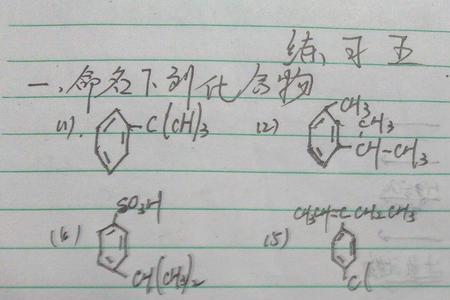 练习五
一、命名下列化合物
(1). C(CH)3
(2) CH3
CH3
CH-CH3
(4) SO3H
CH(CH3)2
(5) CH3CH=C CH2CH3
Cl